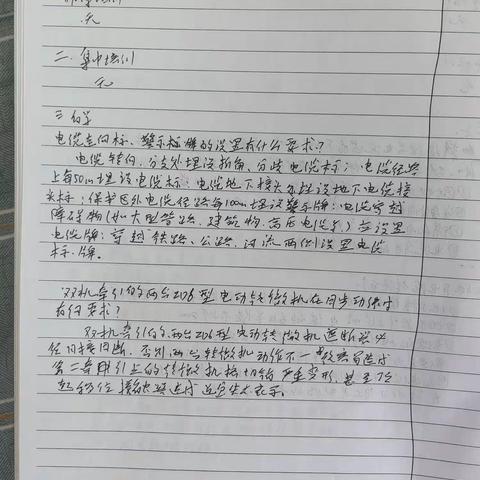 无
二、集中培训
无
三、自学
电缆走向标、警示标牌的设置有什么要求？
电缆转向、分支处埋设拐角、分歧电缆标；电缆径路
上每50m埋设电缆标；电缆地下接头处埋设地下电缆接
头标；保护区外电缆径路每100m埋设警示牌；电缆穿越
障碍物(如大型管路、建筑物、高压电缆等)应设置
电缆牌；穿越铁路、公路、河流两侧设置电缆
标、牌。
双机牵引的两台ZD6型电动转辙机在同步动作时
有何要求？
双机牵引的两台ZD6型电动转辙机
间接用断，否则两台转辙机动作不一致容易造成
第二牵引点的转辙机挤切销严重变形，甚至